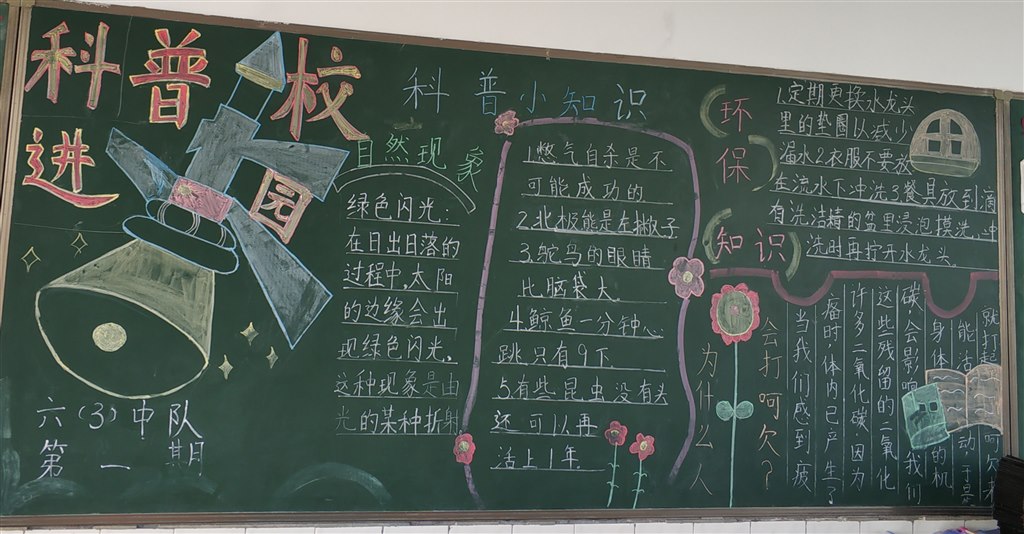 科普进校园
六(3)中队
第一期
科普小知识
自然现象
绿色闪光:
在日出日落的
过程中,太阳
的边缘会出
现绿色闪光,
这种现象是由
光的某种折射
1.燃气自杀是不
可能成功的
2.北极熊是左撇子
3.鸵鸟的眼睛
比脑袋大.
4.鲸鱼一分钟心
跳只有9下.
5.有些昆虫没有头
还可以再
活上1年.
环保
知识
1.定期更换水龙头
里的垫圈以减少
漏水2.衣服不要放
在流水下冲洗3.餐具放到滴
有洗洁精的盆里浸泡摸洗,冲
洗时再拧开水龙头.
为什么人
会打呵欠?
当我们感到疲
痨时体内已产生了
许多二氧化碳,因为
这些残留的二氧化
碳,会影响我们
身体的机
能活动,于是
就打起呵欠来